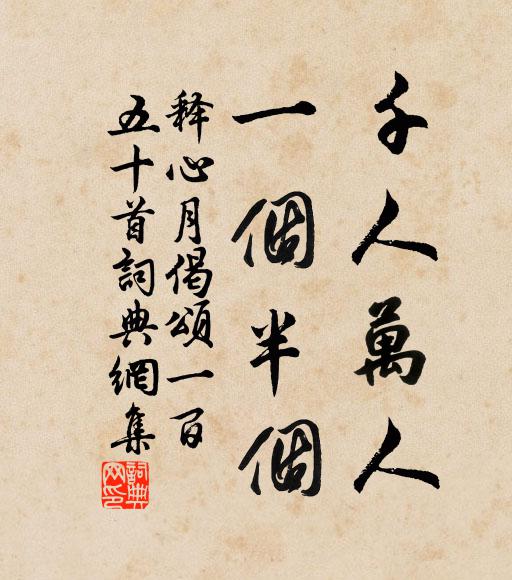 千人萬人
一個半個
释心月偈頌一百
五十首詞典網集
詞典
网印